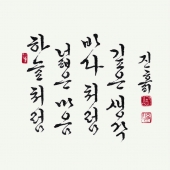 하늘처럼
넓은 마음
바다처럼
깊은 생각
진흙